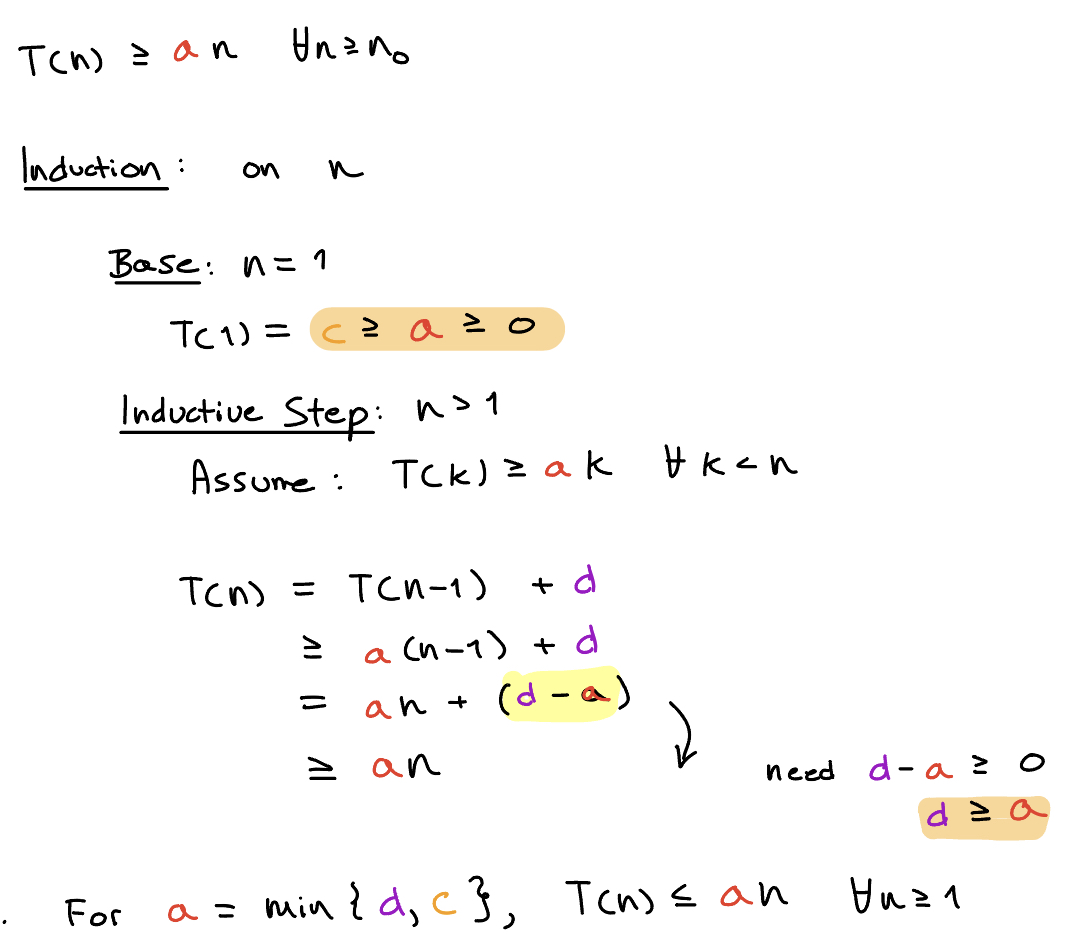 T(n) ≥ a n ∀n ≥ n₀
Induction: on n
Base: n = 1
T(1) = c ≥ a ≥ 0
Inductive Step: n > 1
Assume: T(k) ≥ a k ∀ k < n
T(n) = T(n-1) + d
≥ a (n-1) + d
= an + (d - a)
≥ an
need d - a ≥ 0
d ≥ a
. For a = min { d, c }, T(n) ≤ an ∀n ≥ 1